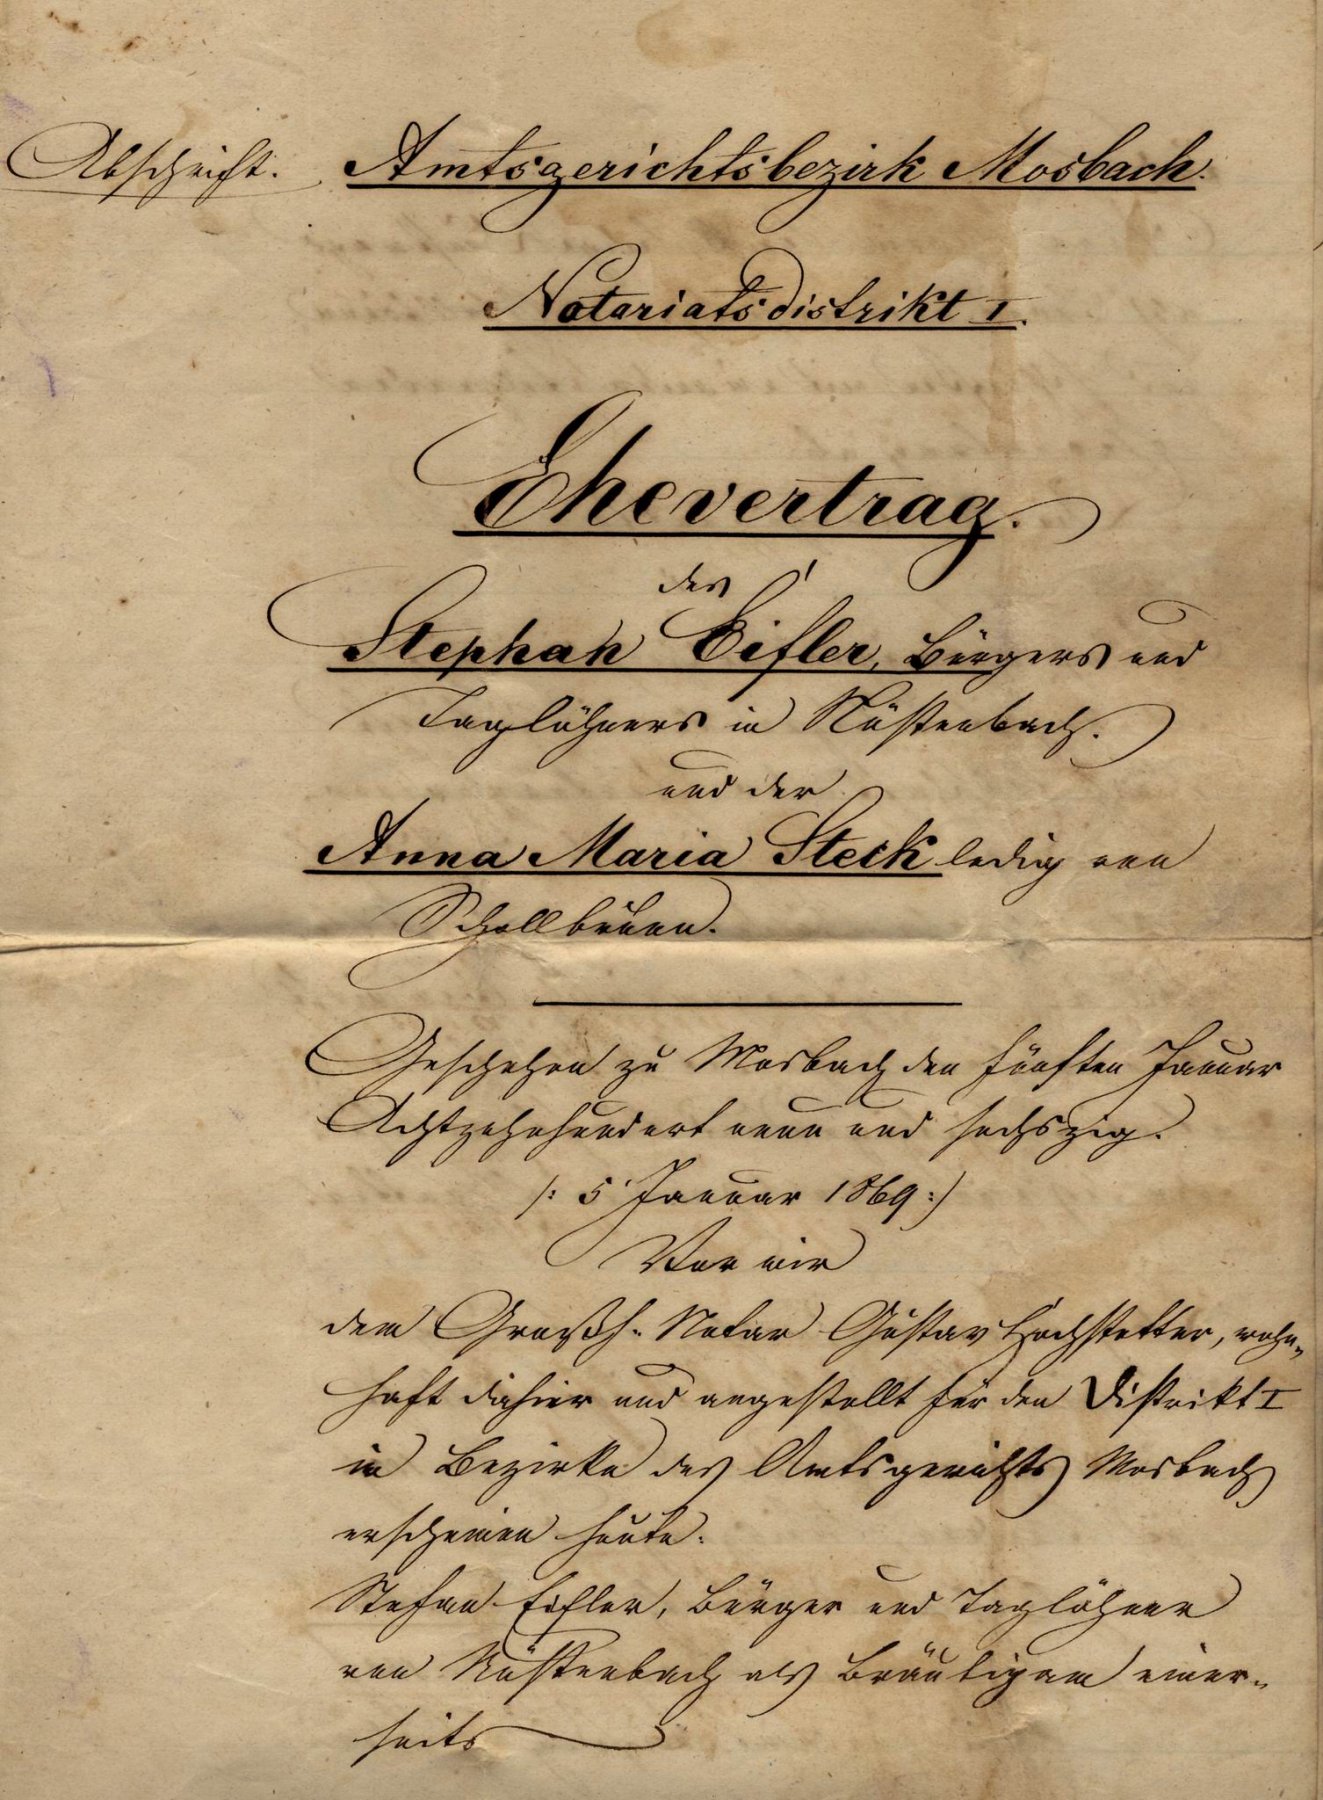 Abschrift. Amtsgerichtsbezirk Mosbach.
Notariatsdistrikt I.
Ehevertrag.
des
Stephan Eifler, Bürgers und
Taglöhners in Nüstenbach.
und der
Anna Maria Steck ledig von
Schollbrunn.
Geschehen zu Mosbach den fünften Januar
Achtzehnhundert neun und sechszig.
/: 5 Januar 1869 :/
Vor mir
dem Großh. Notar Gustav Hochstetter, wohn-
haft dahier und angestellt für den Distrikt I
im Bezirke des Amtsgerichts Mosbach
erscheinen heute:
Stefan Eifler, Bürger und Taglöhner
von Nüstenbach als Bräutigam einer-
seits